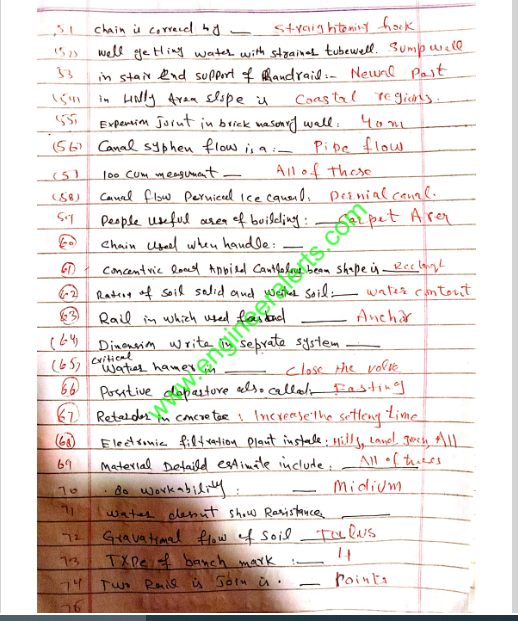 51 chain is correced by — Straightening hook
(52) well getting water with strainer tubewell. Sump well
53 in stair End support of Handrail:- Newal Post
(54) in Hilly Area slope is Coastal regions.
(55) Expension Joint in brick masonry wall: 40m
(56) Canal syphen flow is a:— Pipe flow
(57 100 cum mesument — All of these
(58) Canal flow Pernieal Ice canal: Pernial canal.
59 People useful area of building: — Carpet Arer
(60) chain used when handle: —
(61) Concentric Load Appied Cantilever beam shape is
(62) Ration of Soil solid and Soil: — water content
(63) Rail in which used — Anchar
(64) Dimension write in seprate system —
(65) critical water hamer in — close the valve
(66) Positive departure also called: Easting
(67) Retarder in concrete: Increase the setting time
(68) Electronic filtration plant instale: Hills, Land, All
69 Material Detaild estimate include: All of these
70 .80 workability: — Midium
71 water doesnt show Resistance —
72 Gravational flow of soil — Talus
73 TYPe of banch mark:— 4
74 Two Rail is Join is. — Points
75
www.engineeralerts.com